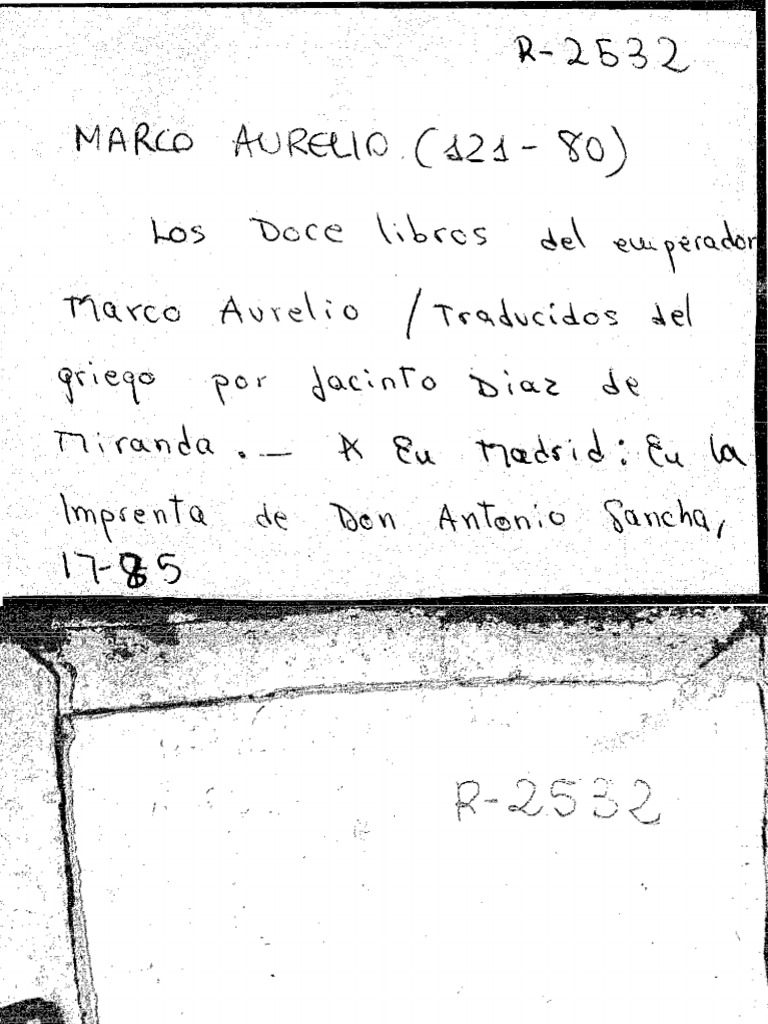 R-2532
MARCO AURELIO. (121-80)
Los Doce libros del emperador
Marco Aurelio / Traducidos del
griego por Jacinto Diaz de
Miranda. — A En Madrid: En la
Imprenta de Don Antonio Sancha,
17-85
R-2532